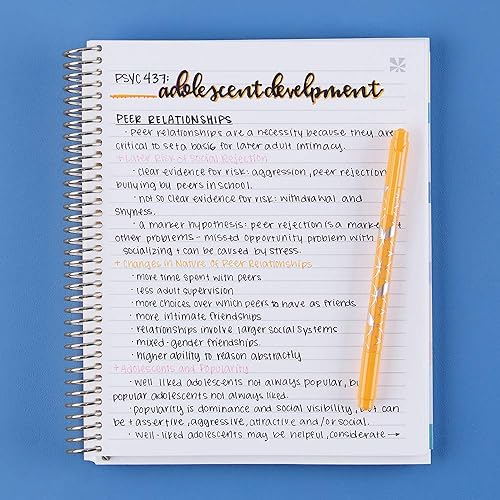 PSYC 437:
adolescent develpment
PEER RELATIONSHIPS
· Peer relationships are a necessity because they are
critical to set a basis for later adult intimacy.
+ Later Risk of Social Rejection
· clear evidence for risk: aggression, peer rejection,
bullying by peers in school.
· not so clear evidence for risk: withdrawal and
shyness.
· a marker hypothesis: peer rejection is a marke
other problems - missed opportunity problem with
socializing + can be caused by stress.
+ Changes in Nature of Peer Relationships
· more time spent with peers
· less adult supervision
· more choices over which peers to have as friends.
· more intimate friendships
· relationships involve larger social systems
· mixed-gender friendships.
· higher ability to reason abstractly
+ Adolescents and Popularity
· well liked adolescents not always popular, bu
popular adolescents not always liked.
· popularity is dominance and social visibility, but can
be + assertive, aggressive, attractive and/or social.
· well-liked adolescents may be helpful, considerate →